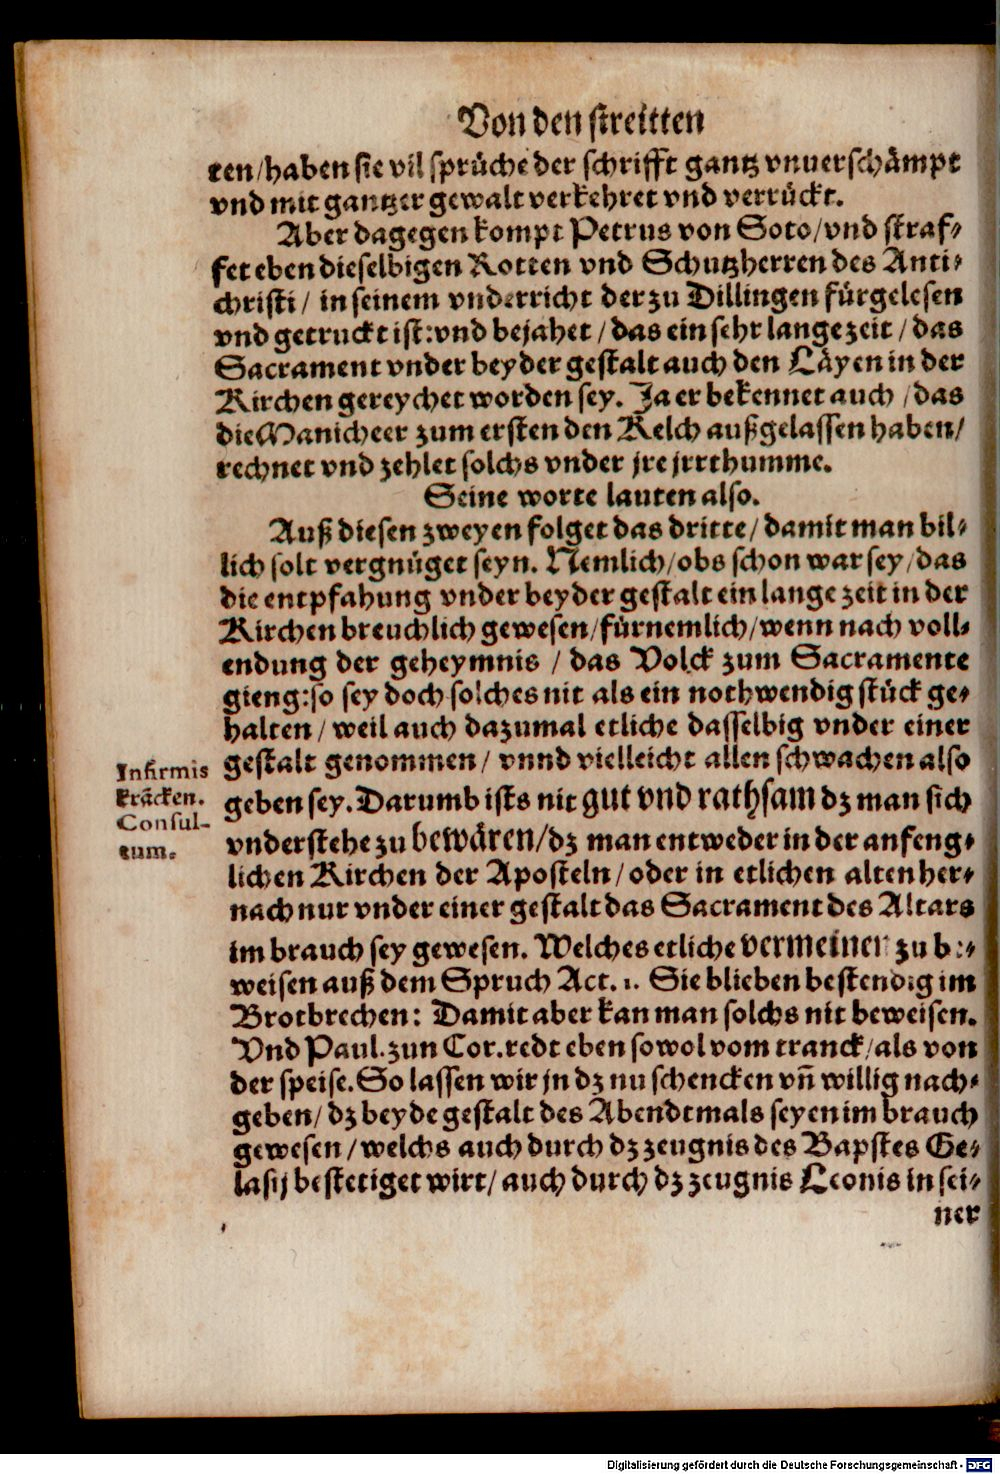 Von den streitten
ten/haben sie vil sprüche der schrifft gantz vnuerschämpt
vnd mit gantzer gewalt verkehret vnd verrückt.
Aber dagegen kompt Petrus von Soto/vnd straf-
fet eben dieselbigen Rotten vnd Schutzherren des Anti-
christi/ in seinem vnderricht der zu Dillingen fürgelesen
vnd getruckt ist:vnd bejahet/das ein sehr lange zeit/das
Sacrament vnder beyder gestalt auch den Läyen in der
Kirchen gereychet worden sey. Ja er bekennet auch/das
die Manicheer zum ersten den Kelch außgelassen haben/
rechnet vnd zehlet solchs vnder jre jrrthumme.
Seine worte lauten also.
Auß diesen zweyen folget das dritte/damit man bil-
lich solt vergnüget seyn. Nemlich/obs schon war sey/das
die entpfahung vnder beyder gestalt ein lange zeit in der
Kirchen breuchlich gewesen/fürnemlich/wenn nach voll-
endung der geheymnis/das Volck zum Sacramente
gieng:so sey doch solches nit als ein nothwendig stück ge-
halten/weil auch dazumal etliche dasselbig vnder einer
gestalt genommen/vnnd vielleicht allen schwachen also
geben sey. Darumb ists nit gut vnd rathsam dz man sich
vnderstehe zu bewären/dz man entweder in der anfeng-
lichen Kirchen der Aposteln/oder in etlichen alten her-
nach nur vnder einer gestalt das Sacrament des Altars
im brauch sey gewesen. Welches etliche vermeinen zu be-
weisen auß dem Spruch Act. 1. Sie blieben bestendig im
Brotbrechen: Damit aber kan man solchs nit beweisen.
Vnd Paul. zun Cor. redt eben sowol vom tranck/als von
der speise. So lassen wir jn dz nu schencken vñ willig nach-
geben/dz beyde gestalt des Abendtmals seyen im brauch
gewesen/welchs auch durch dz zeugnis des Bapstes Ge-
lasij bestetiget wirt/auch durch dz zeugnis Leonis in sei-
ner
Infirmis
kräcken.
Consul-
tum.
Digitalisierung gefördert durch die Deutsche Forschungsgemeinschaft - DFG